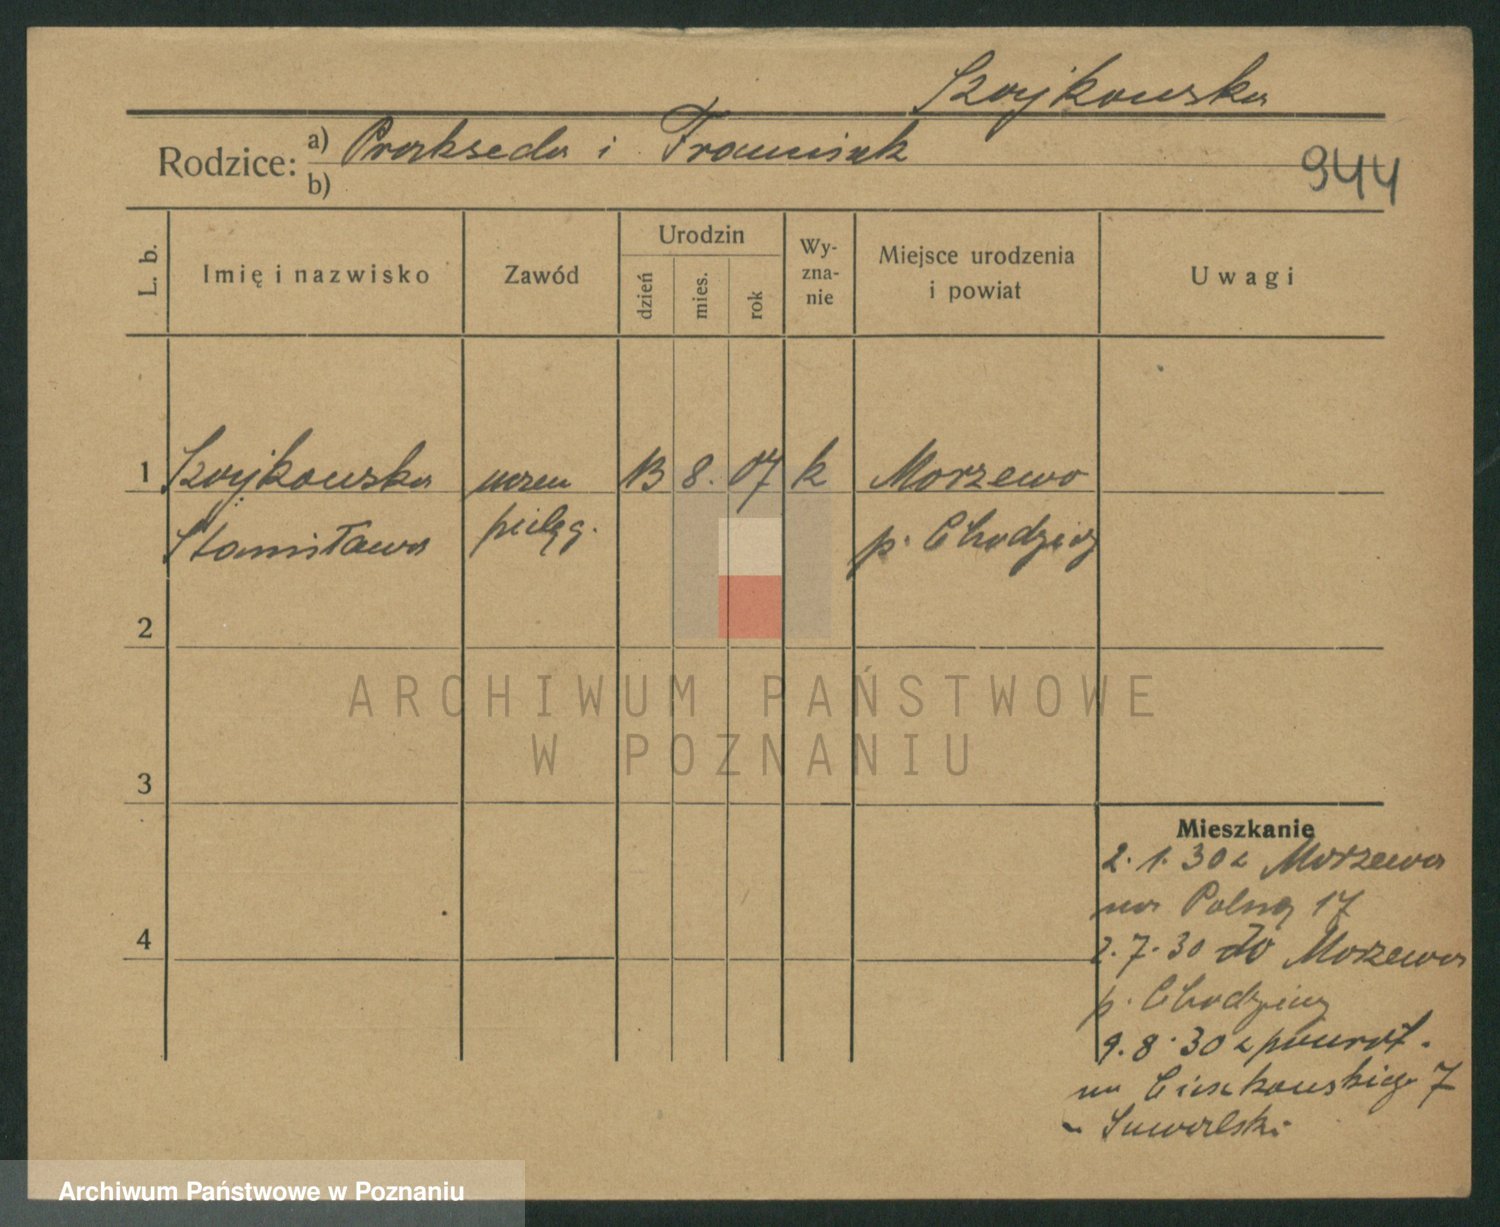 Szojkowska
Rodzice: a) Prakseda i Franciszek
b)
944
L. b.
Imię i nazwisko
Zawód
Urodzin
dzień
mies.
rok
Wy-
zna-
nie
Miejsce urodzenia
i powiat
Uwagi
1 Szojkowska 13 8. 07 k Morzewo
Stanisława pielęg. p. Chodzież
2
3
4
Mieszkanie
2. 1. 30 z Morzewa
na Polną 17
2. 7. 30 do Morzewa
p. Chodzież
9. 8. 30 z powrot.
na Cieszkowskiego 7
ARCHIWUM PAŃSTWOWE
W POZNANIU
Archiwum Państwowe w Poznaniu